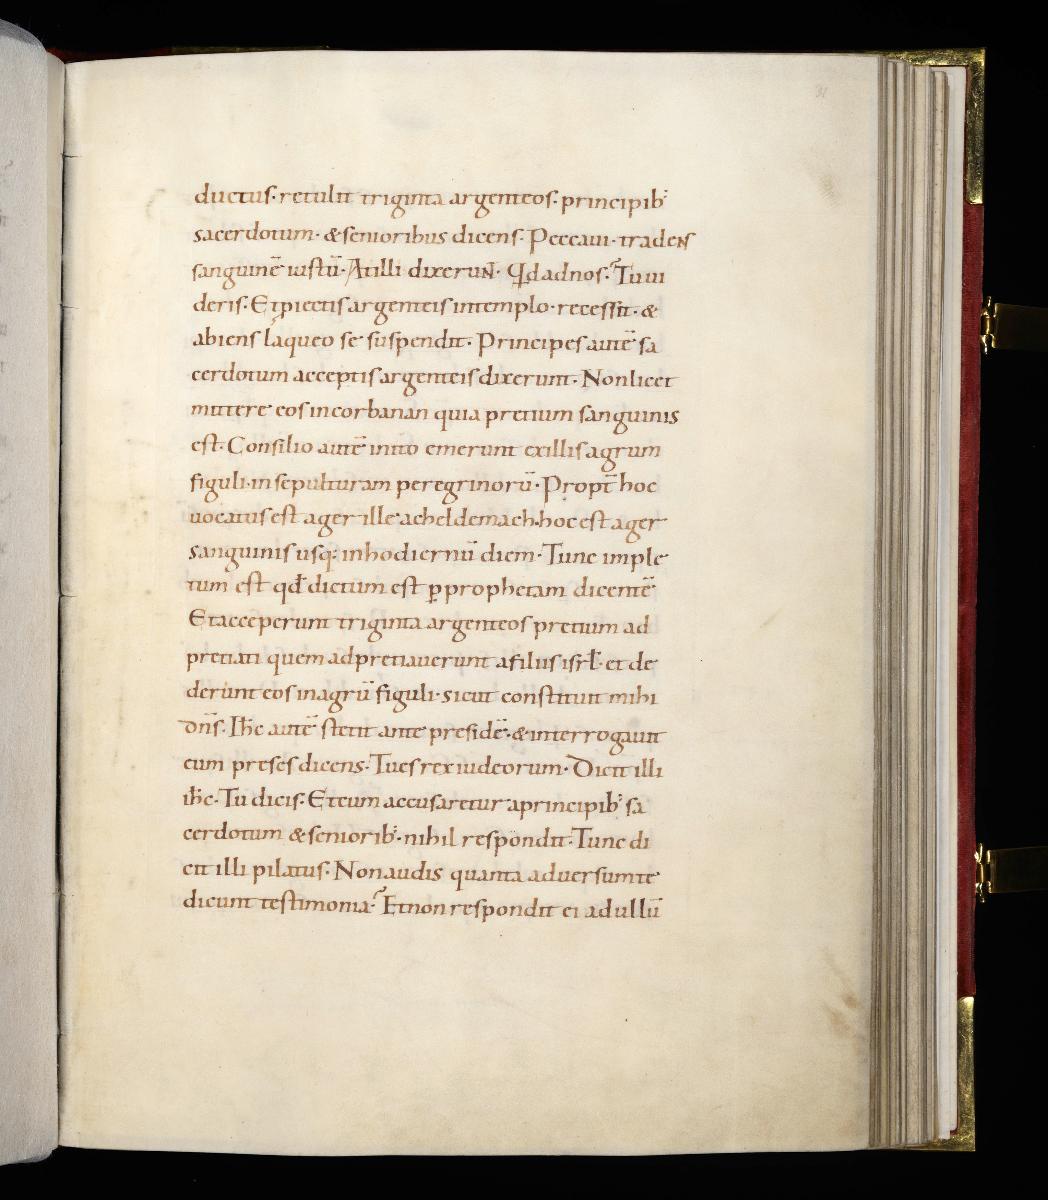 31
ductus· retulit triginta argenteos· principib;
sacerdotum· & senioribus dicens· Peccaui· tradens
sanguinē iustū· At illi dixerunt· Qd̄ ad nos? Tu ui
deris· Et piectis argenteis in templo· recessit· &
abiens laqueo se suspendit· Principes autē sa
cerdotum acceptis argenteis dixerunt· Non licet
mittere eos in corbanan quia pretium sanguinis
est· Consilio autē inito emerunt ex illis agrum
figuli· in sepulturam peregrinorū· Propt̄ hoc
uocatus est ager ille acheldemach· hoc est ager
sanguinis usq; in hodiernū diem· Tunc imple
tum est qd̄ dictum est ꝑ prophetam dicentē
Et acceperunt triginta argenteos pretium ad
pretiati quem adpretiauerunt a filiis isrł· et de
derunt eos in agrū figuli· sicut constituit mihi
dn̄s· Ih̄c autē stetit ante presidē· & interrogauit
eum preses dicens· Tu es rex iudeorum· Dicit illi
ih̄c· Tu dicis· Et cum accusaretur a principib; sa
cerdotum & seniorib;· nihil respondit· Tunc di
cit illi pilatus· Non audis quanta aduersum te
dicunt testimonia? Et non respondit ei ad ullū